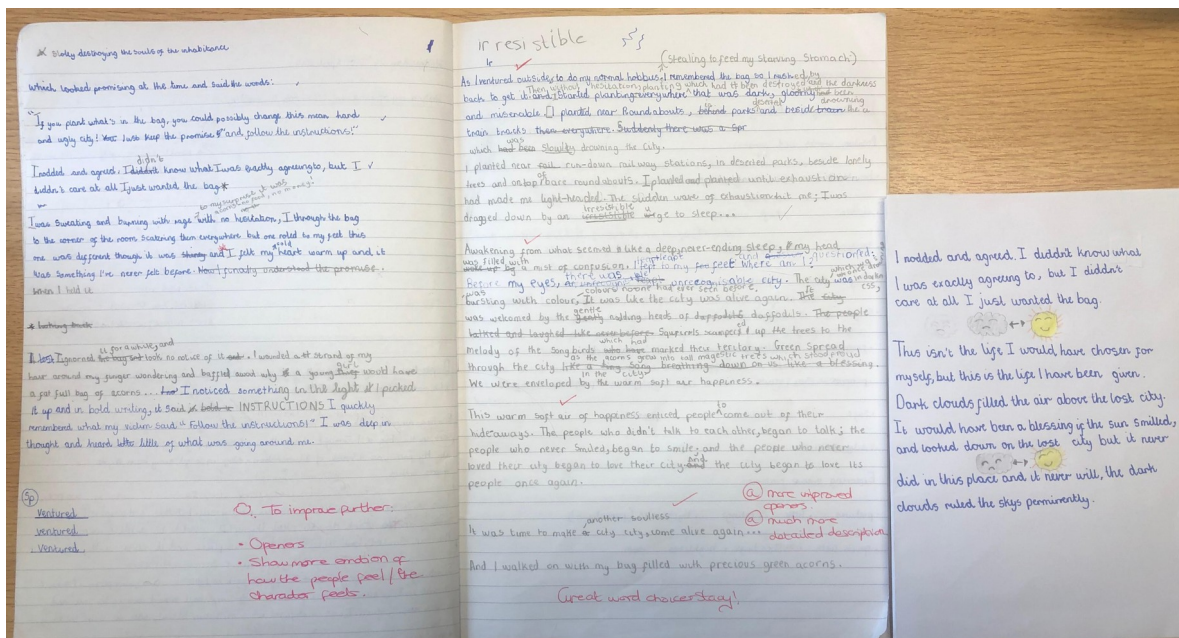 * Slowly destroying the souls of the inhabitance
which looked promising at the time and said the words:
"If you plant what's in the bag, you could possibly change this mean hard
and ugly city! Just keep the promise and follow the instructions!"
didn't
I nodded and agreed. I diddn't know what I was exactly agreeing to, but I
diddn't care at all I just wanted the bag
to my surprise it was
no money!
I was sweating and burning with rage with no hesitation, I through the bag
to the corner of the room scattering them everywhere but one roled to my feet this
one was different though it was and I felt my cold heart warm up and it
was something I've never felt before. Now I finally understood the promise
when I held it
it for a while, and
I ignored took no notice of it. I wounded a strand of my
hair around my finger wondering and baffled away why a young girl would have
a fat full bag of acorns... I noticed something in the light I picked
it up and in bold writing, it said INSTRUCTIONS I quickly
remembered what my victim said "Follow the instructions!" I was deep in
thought and heard little of what was going around me.
Sp
Ventured
ventured
Ventured
To improve further:
• Openers
• Show more emotion of
how the people feel / the
character feels.
irresistible
Ir
(Stealing to feed my starving stomach)
As I ventured outside, to do my normal hobbies, I remembered the bag so I rushed
back to get it and I started planting everywhere that was dark, gloomy
Then, without hesitation, planting which had been destroyed and the darkness
and miserable. I planted near Roundabouts, behind parks and beside the
train tracks them everywhere. Suddenly there was a Spr
which was slowly drowning the city.
I planted near run-down railway stations, in deserted parks, beside lonely
trees and on top of bare roundabouts. I planted and planted until exhaustion
had made me light-headed. The sudden wave of exhaustion hit me; I was
dragged down by an irresistible urge to sleep...
Awakening from what seemed like a deep, never-ending sleep, my head
was filled with a mist of confusion. I leapt to my feet and questioned: Where am I?
Before my eyes, there was unrecognisable city. The city
was bursting with colour, It was like the city was alive again.
colours no one had ever seen before.
was welcomed by the gentle nodding heads of daffodils. The people
talked and laughed like never before. Squirrels scampered up the trees to the
melody of the songbirds which had marked their teritory. Green spread
through the city as the acorns grew into tall magestic trees which stood proud
in the city breathing down on us like a blessing.
We were enveloped by the warm soft air happiness.
This warm soft air of happiness enticed people to come out of their
hideaways. The people who didn't talk to each other, began to talk; the
people who never smiled, began to smile; and the people who never
loved their city began to love their city and the city began to love its
people once again.
another soulless
It was time to make a city city, come alive again...
And I walked on with my bag filled with precious green acorns.
@ more improved
openers.
@ much more
detailed description
Great word choice & story!
I nodded and agreed. I diddn't know what
I was exactly agreeing to, but I diddn't
care at all I just wanted the bag.
This isn't the life I would have chosen for
myself, but this is the life I have been given.
Dark clouds filled the air above the lost city.
It would have been a blessing if the sun smiled,
and looked down on the lost city but it never
did in this place and it never will, the dark
clouds ruled the skys perminently.